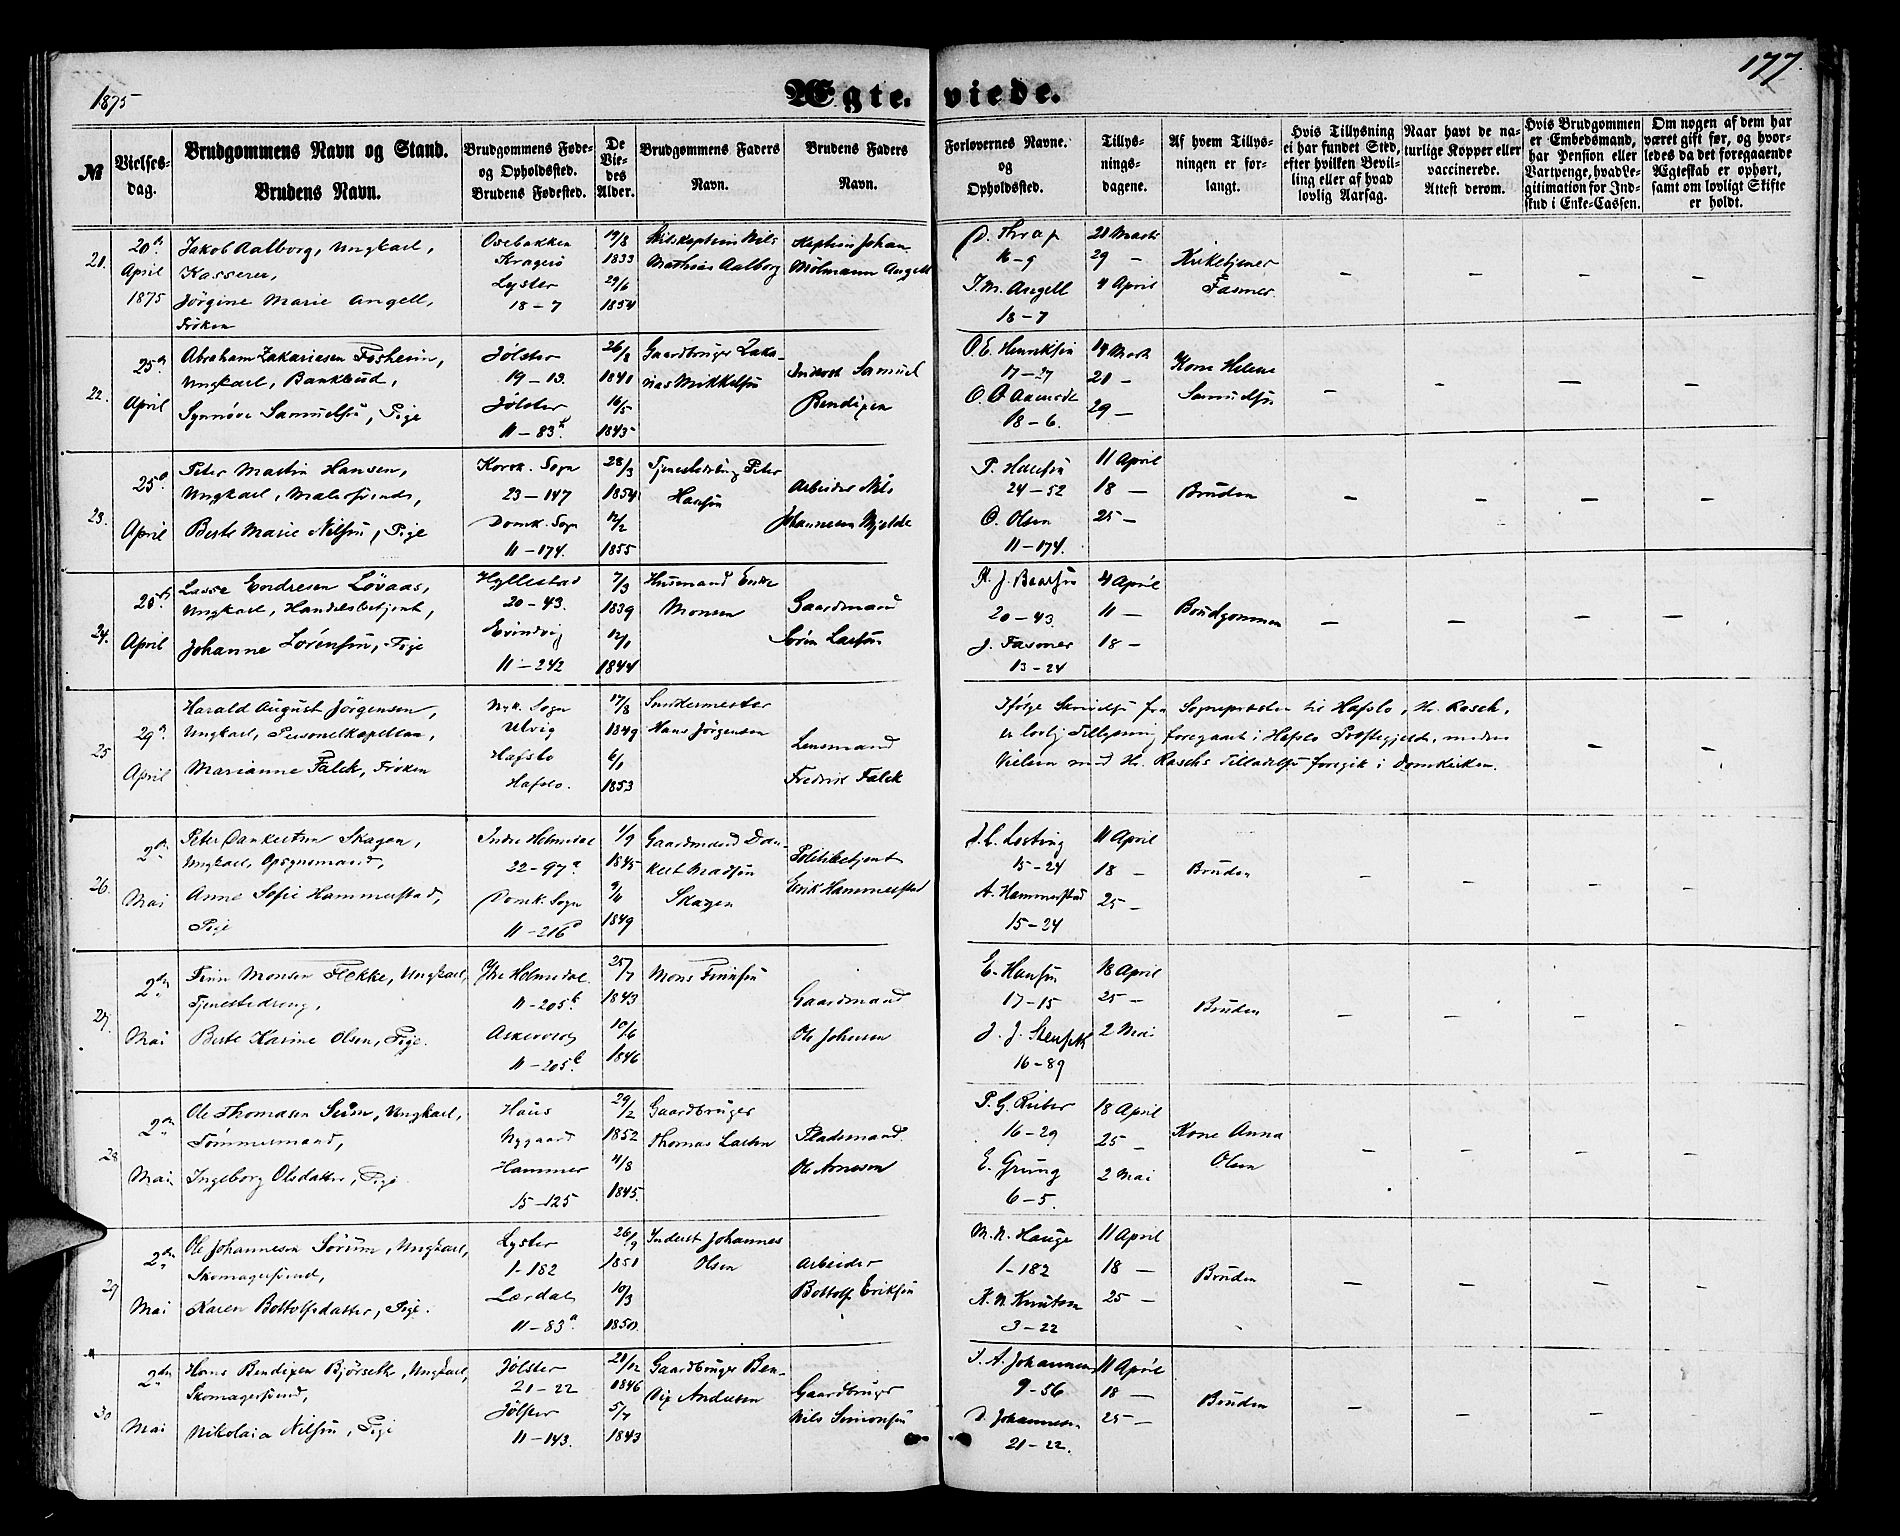 1875
Ægte-viede.
177.
№
Vielses-dag.
Brudgommens Navn og Stand.
Brudens Navn.
Brudgommens Føde- og Opholdssted.
Brudens Fødested.
De Viedes Alder.
Brudgommens Faders Navn.
Brudens Faders Navn.
Forlovernes Navne. og Opholdssted.
Tillysningsdagene.
Af hvem Tillysningen er forlangt.
Hvis Tillysning ei har fundet Sted, efter hvilken Bevilling eller af hvad lovlig Aarsag.
Naar havt de naturlige Kopper eller vaccinerede. Attest derom.
Hvis Brudgommen er Embedsmand, har Pension eller Vartpenge, hvad Legitimation for Indskud i Enke-Cassen.
Om nogen af dem har været gift før, og hvorledes da det foregaaende Ægteskab er ophørt, samt om lovligt Skifte er holdt.
21.
20de April 1875
Jakob Aalborg, Ungkarl,
Kasserer,
Jörgine Marie Angell,
Fröken
Osebakken
Kragerö
Lyster
18-7
19/8 1833
29/6 1854
Skibskaptein Nils
Mathias Aalborg
Kaptein Johan
Mölmann Angell
D. Thrap
16-9
J. M. Angell
18-7
21 Marts
29 -
4 April
Kirketjener
Fasmer
22.
25de April
Abraham Zakariasen Fosheim,
Ungkarl, Bankbud,
Synnöve Samuelsen, Pige
Jölster
19-13.
Jölster
11-83
26/8 1840
16/5 1843
Gaardbruger Zaka-
rias Mikkelsen
Inderst Samuel
Bendixen
O. E. Henriksen
17-27
18-6.
14 Marts
21 -
29 -
Kone Helene
Samuelsen
23.
25de April
Peter Martin Hansen,
Ungkarl, Malersvend,
Berte Marie Nilsen, Pige
Korsk. Sogn
23-147
Domk. Sogn
11-174.
28/3 1854
12/2 1855
Tjenestedreng Peter
Hansen
Arbeider Nils
Johannesen Mjelde
P. Hansen
24-52
O. Olsen
11-174.
11 April
18 -
25 -
Bruden
24.
25de April
Lasse Endresen Lövaas,
Ungkarl, Handelsbetjent,
Johanne Sörensen, Pige
Hyllestad
20-43.
Evindvig
11-242
7/3 1839
12/1 1844
Husmand Endre
Monsen
Gaardmand
Sören Larsen
20-43.
J. Fasmer
13-24
4 April
11 -
18 -
Brudgommen
25
29de April
Harald August Jörgensen,
Ungkarl, Personelkapellan,
Marianne Falck, Fröken
Nyk. Sogn
Ulvig
Hafslo
Hafslo.
17/8 1849
6/1 1853
Snedkermester
Hans Jörgensen
Lensmand
Fredrik Falck
Ifölge Skrivelse fra Sognepræsten til Hafslo, Hr. Rasch,
er lovlig Tillysning foregaaet i Hafslo Præstegjeld, medens
Vielsen med Hr. Raschs Tilladelse foregik i Domkirken.
26.
2den Mai
Peter Dankertsen Skagen,
Ungkarl, Opsynsmand,
Anne Sofie Hammerstad,
Pige
Indre Holmedal
22-97a
Domk. Sogn
11-216
1/9 1845
9/11 1849
Gaardmand Dan-
kert Madsen
Skagen
Politibetjent
Erik Hammerstad
15-24
A. Hammerstad
15-24
11 April
18 -
25 -
Bruden
27.
2den Mai
Finn Monsen Flekke, Ungkarl,
Tjenestedreng,
Berte Karine Olsen, Pige.
Ytre Holmedal
11-205b
Askevold
11-205b
25/7 1843
10/6 1846
Mons Finnsen
Gaardmand
Ole Johnsen
E. Hansen
17-15
16-89
18 April
25 -
2 Mai
Bruden
28
2den Mai
Ole Thomasen Seim, Ungkarl,
Tömmermand,
Ingeborg Olsdatter, Pige.
Haus
Nygaard
Hammer
15-125
29/2 1852
4/8 1845.
Gaardbruger
Thomas Larsen
Pladsmand.
Ole Arnesen
P. G. Rieber
16-29
E. Grung
6-5.
18 April
25 -
2 Mai
Kone Anna
Olsen
29
2den Mai
Ole Johannesen Sörum, Ungkarl,
Skomagersvend,
Karen Bottolfsdatter, Pige.
Lyster
1-182
Lærdal
11-83a.
26/9 1851
10/3 1850.
Inderst Johannes
Olsen
Arbeider
Bottolf Eriksen
M. N. Hauge
1-182
K. N. Knutsen
3-22
11 April
18 -
25 -
Bruden
30
2den Mai
Hans Bendixen Björseth, Ungkarl,
Skomagersvend,
Nikolaia Nilsen, Pige
Jölster
21-22
Jölster
11-143.
21/12 1846
5/7 1843
Gaardbruger Ben-
dix Andersen
Gaardbruger
Nils Simonsen
J. A. Johannesen
9-56
D. Johannesen
21-22.
11 April
18 -
25 -
Bruden